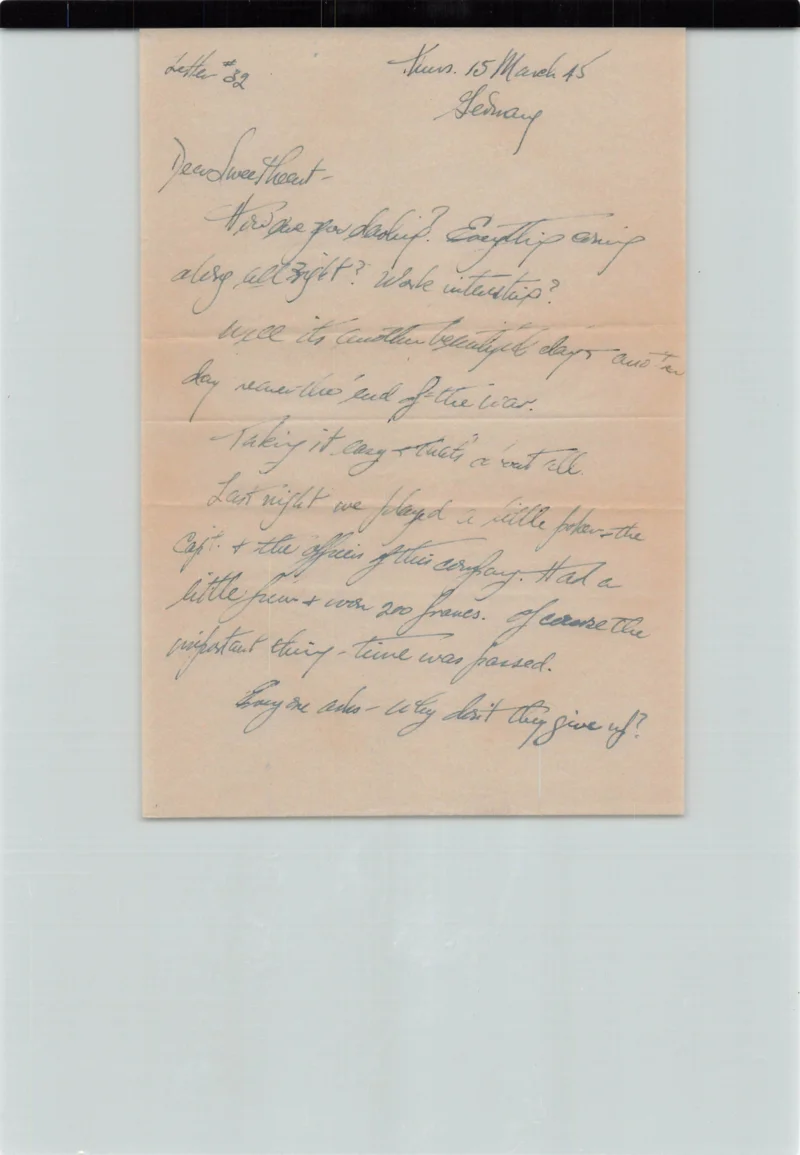 Letter #32
Thurs. 15 March 45
Germany
Dear Sweetheart -
How are you darling? Everything coming
along all right? Work interesting?
Well its another beautiful day + another
day nearer the end of the war.
Taking it easy + that's about all.
Last night we played a little poker - the
Capt. + the officers of this company. Had a
little fun + won 200 francs. Of course the
important thing - time was passed.
Everyone asks - Why don't they give up?